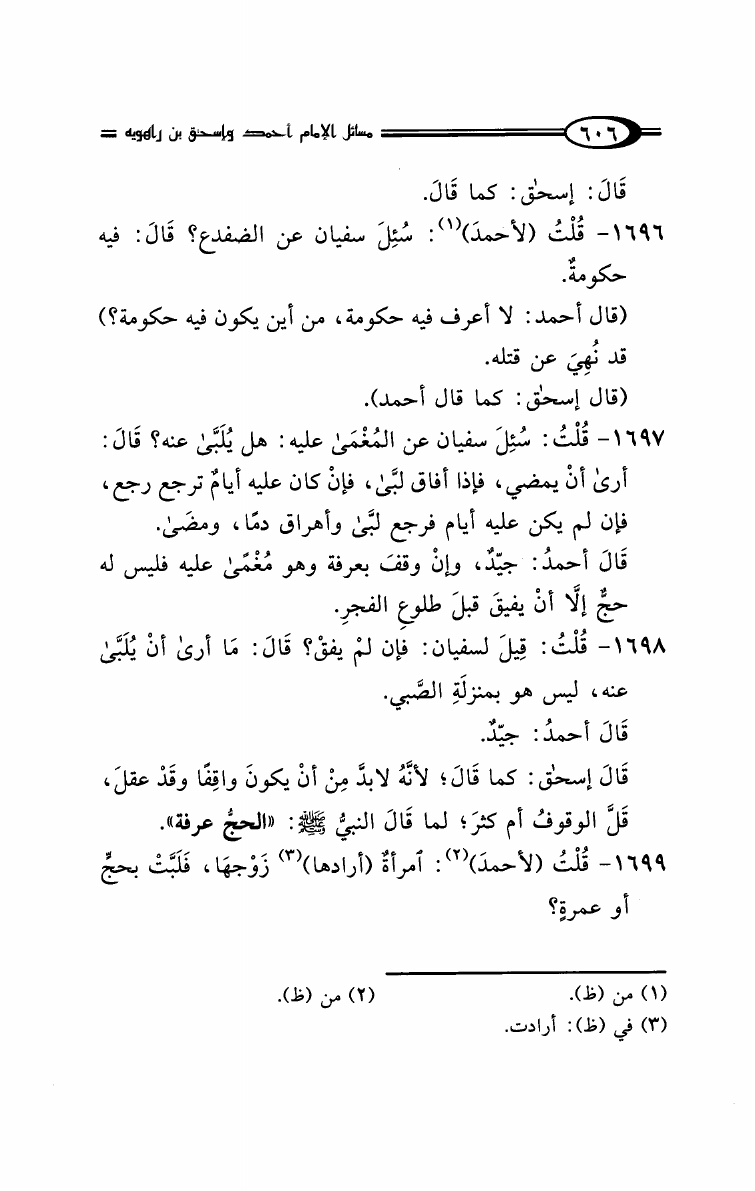 ٦٠٦ مسائل الإمام أحمد وإسحق بن راهويه
قَالَ: إسحٰق: كما قَالَ.
١٦٩٦- قُلْتُ (لأحمدَ)(١): سُئِلَ سفيان عن الضفدع؟ قَالَ: فيه
حكومةٌ.
(قال أحمد: لا أعرف فيه حكومة، من أين يكون فيه حكومة؟)
قد نُهِيَ عن قتله.
(قال إسحٰق: كما قال أحمد).
١٦٩٧- قُلْتُ: سُئِلَ سفيان عن المُغْمَىٰ عليه: هل يُلَبَّىٰ عنه؟ قَالَ:
أرىٰ أنْ يمضي، فإذا أفاق لبَّىٰ، فإنْ كان عليه أيامٌ ترجع رجع،
فإن لم يكن عليه أيام فرجع لبَّىٰ وأهراق دمًا، ومضَىٰ.
قَالَ أحمدُ: جيّدٌ، وإنْ وقفَ بعرفة وهو مُغْمًىٰ عليه فليس له
حجٌّ إلَّا أنْ يفيقَ قبلَ طلوعِ الفجرِ.
١٦٩٨- قُلْتُ: قِيلَ لسفيان: فإن لمْ يفقْ؟ قَالَ: مَا أرىٰ أنْ يُلَبَّىٰ
عنه، ليس هو بمنزلَةِ الصَّبي.
قَالَ أحمدُ: جيّدٌ.
قَالَ إسحٰق: كما قَالَ؛ لأنَّهُ لابدَّ مِنْ أنْ يكونَ واقِفًا وقَدْ عقلَ،
قَلَّ الوقوفُ أم كثرَ؛ لما قَالَ النبيُّ ﷺ: «الحجُّ عرفة».
١٦٩٩- قُلْتُ (لأحمدَ)(٢): ٱمرأةٌ (أرادها)(٣) زَوْجهَا، فَلَبَّتْ بحجٍّ
أو عمرةٍ؟
(١) من (ظ). (٢) من (ظ).
(٣) في (ظ): أرادت.